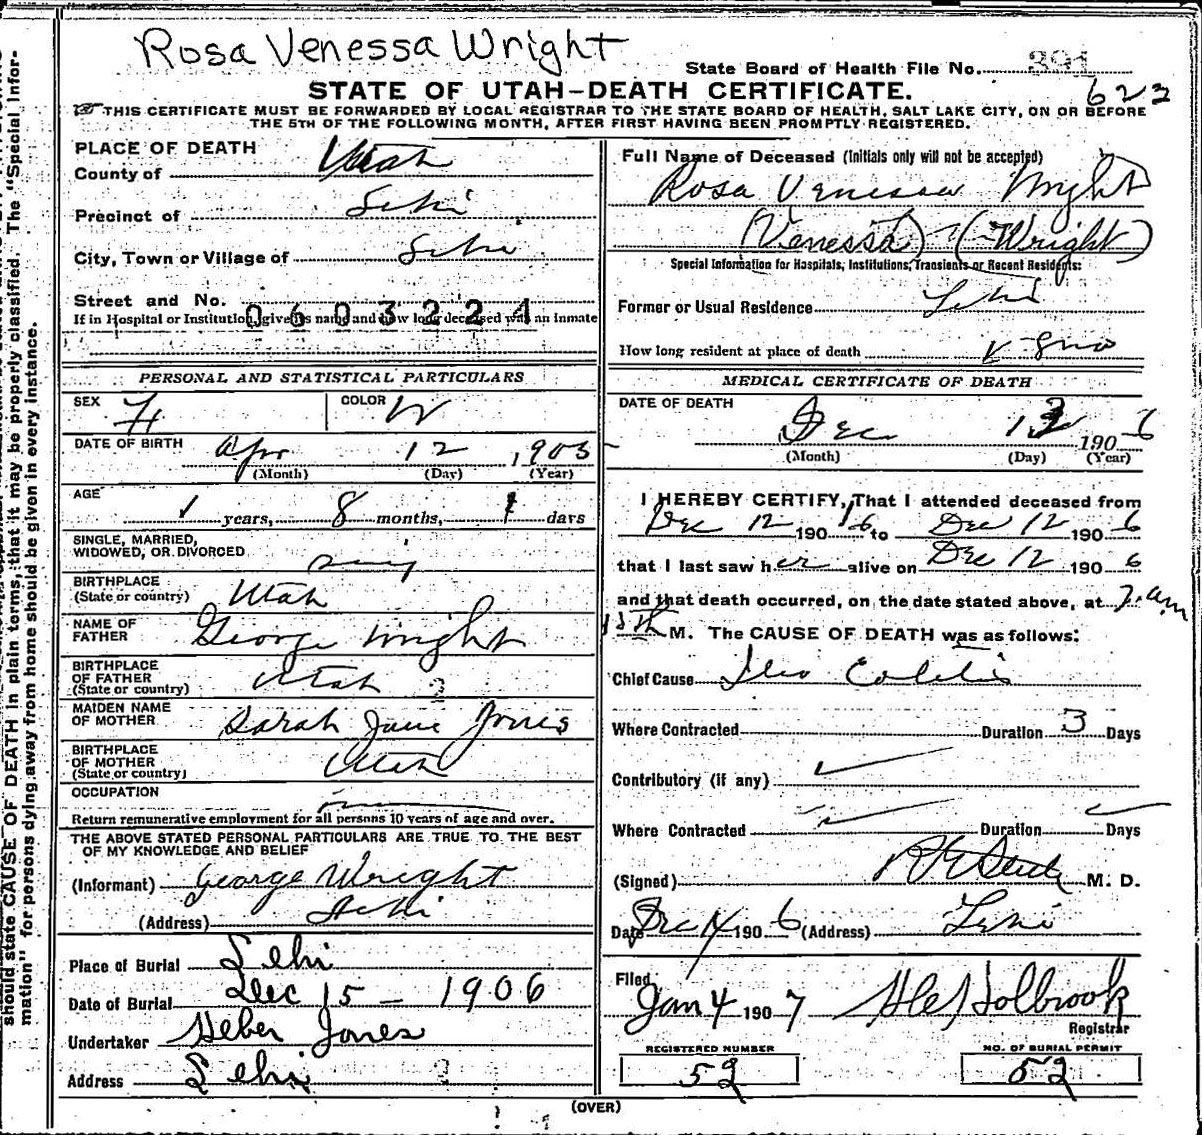 Rosa Venessa Wright
State Board of Health File No. 391
622
STATE OF UTAH-DEATH CERTIFICATE.
THIS CERTIFICATE MUST BE FORWARDED BY LOCAL REGISTRAR TO THE STATE BOARD OF HEALTH, SALT LAKE CITY, ON OR BEFORE
THE 5TH OF THE FOLLOWING MONTH, AFTER FIRST HAVING BEEN PROMPTLY REGISTERED.
PLACE OF DEATH
County of Utah
Precinct of Lehi
City, Town or Village of Lehi
Street and No.
0603224
If in Hospital or Institution, give its name and how long deceased was an inmate
PERSONAL AND STATISTICAL PARTICULARS
SEX F COLOR W
DATE OF BIRTH Apr 12 1905
(Month) (Day) (Year)
AGE 1 years, 8 months, 1 days
SINGLE, MARRIED,
WIDOWED, OR DIVORCED
BIRTHPLACE
(State or country) Utah
NAME OF
FATHER George Wright
BIRTHPLACE
OF FATHER
(State or country) Utah
MAIDEN NAME
OF MOTHER Sarah Jane Jones
BIRTHPLACE
OF MOTHER
(State or country) Utah
OCCUPATION
Return remunerative employment for all persons 10 years of age and over.
THE ABOVE STATED PERSONAL PARTICULARS ARE TRUE TO THE BEST
OF MY KNOWLEDGE AND BELIEF
(Informant) George Wright
(Address) Lehi
Place of Burial Lehi
Date of Burial Dec 15 - 1906
Undertaker Heber Jones
Address Lehi
Full Name of Deceased (Initials only will not be accepted)
Rosa Venessa Wright
(Venessa) (Wright)
Special Information for Hospitals, Institutions, Transients or Recent Residents:
Former or Usual Residence Lehi
How long resident at place of death
MEDICAL CERTIFICATE OF DEATH
DATE OF DEATH
Dec 13 1906
(Month) (Day) (Year)
I HEREBY CERTIFY, That I attended deceased from
Dec 12 1906 to Dec 12 1906
that I last saw her alive on Dec 12 1906
and that death occurred, on the date stated above, at 7 am
13th M. The CAUSE OF DEATH was as follows:
Chief Cause Ileo Colitis
Where Contracted Duration 3 Days
Contributory (if any)
Where Contracted Duration Days
(Signed) M. D.
Date Dec 14 1906 (Address) Lehi
Filed
Jan 4 1907 Holbrook
Registrar
REGISTERED NUMBER
52
NO. OF BURIAL PERMIT
52
(OVER)
should state CAUSE OF DEATH in plain terms, that it may be properly classified. The "Special Infor-
mation" for persons dying away from home should be given in every instance.